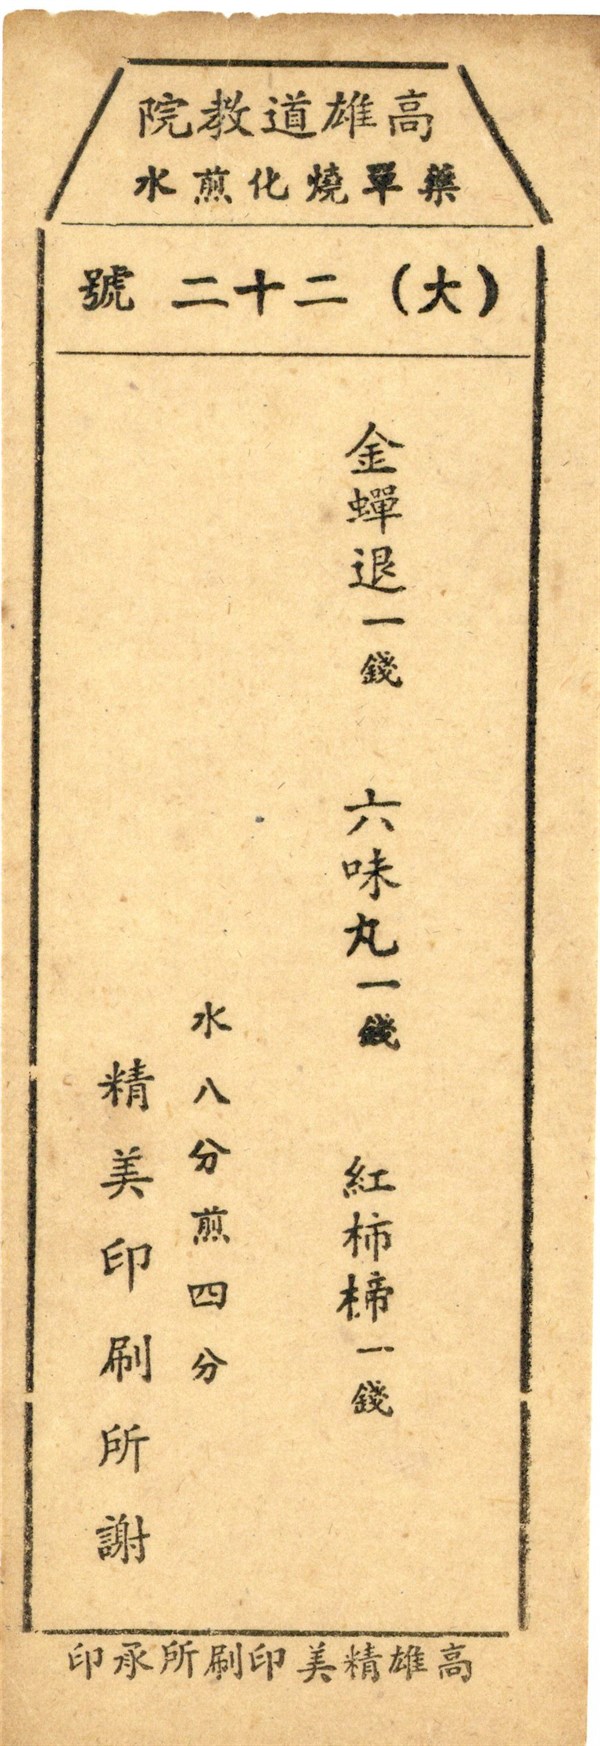 高雄道教院
藥單燒化煎水
(大)二十二號
金蟬退一錢 六味丸一錢 紅柿楴一錢
水八分煎四分
精美印刷所謝
高雄精美印刷所承印